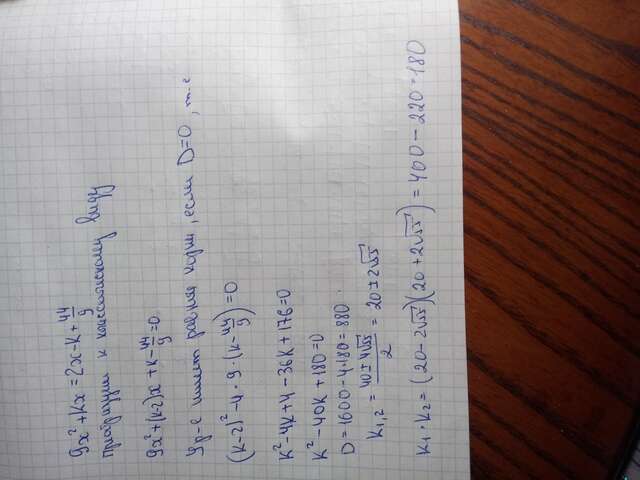 9x² + Kx = 2x - K + 44/9
приобразуем к классическому виду
9x² + (K-2)x + K - 44/9 = 0
Ур-е имеет равные корни, если D=0, т.е
(K-2)² - 4 · 9 · (K - 44/9) = 0
K² - 4K + 4 - 36K + 176 = 0
K² - 40K + 180 = 0
D = 1600 - 4·180 = 880
K₁,₂ = (40 ± 4√55)/2 = 20 ± 2√55
K₁ · K₂ = (20 - 2√55)(20 + 2√55) = 400 - 220 = 180